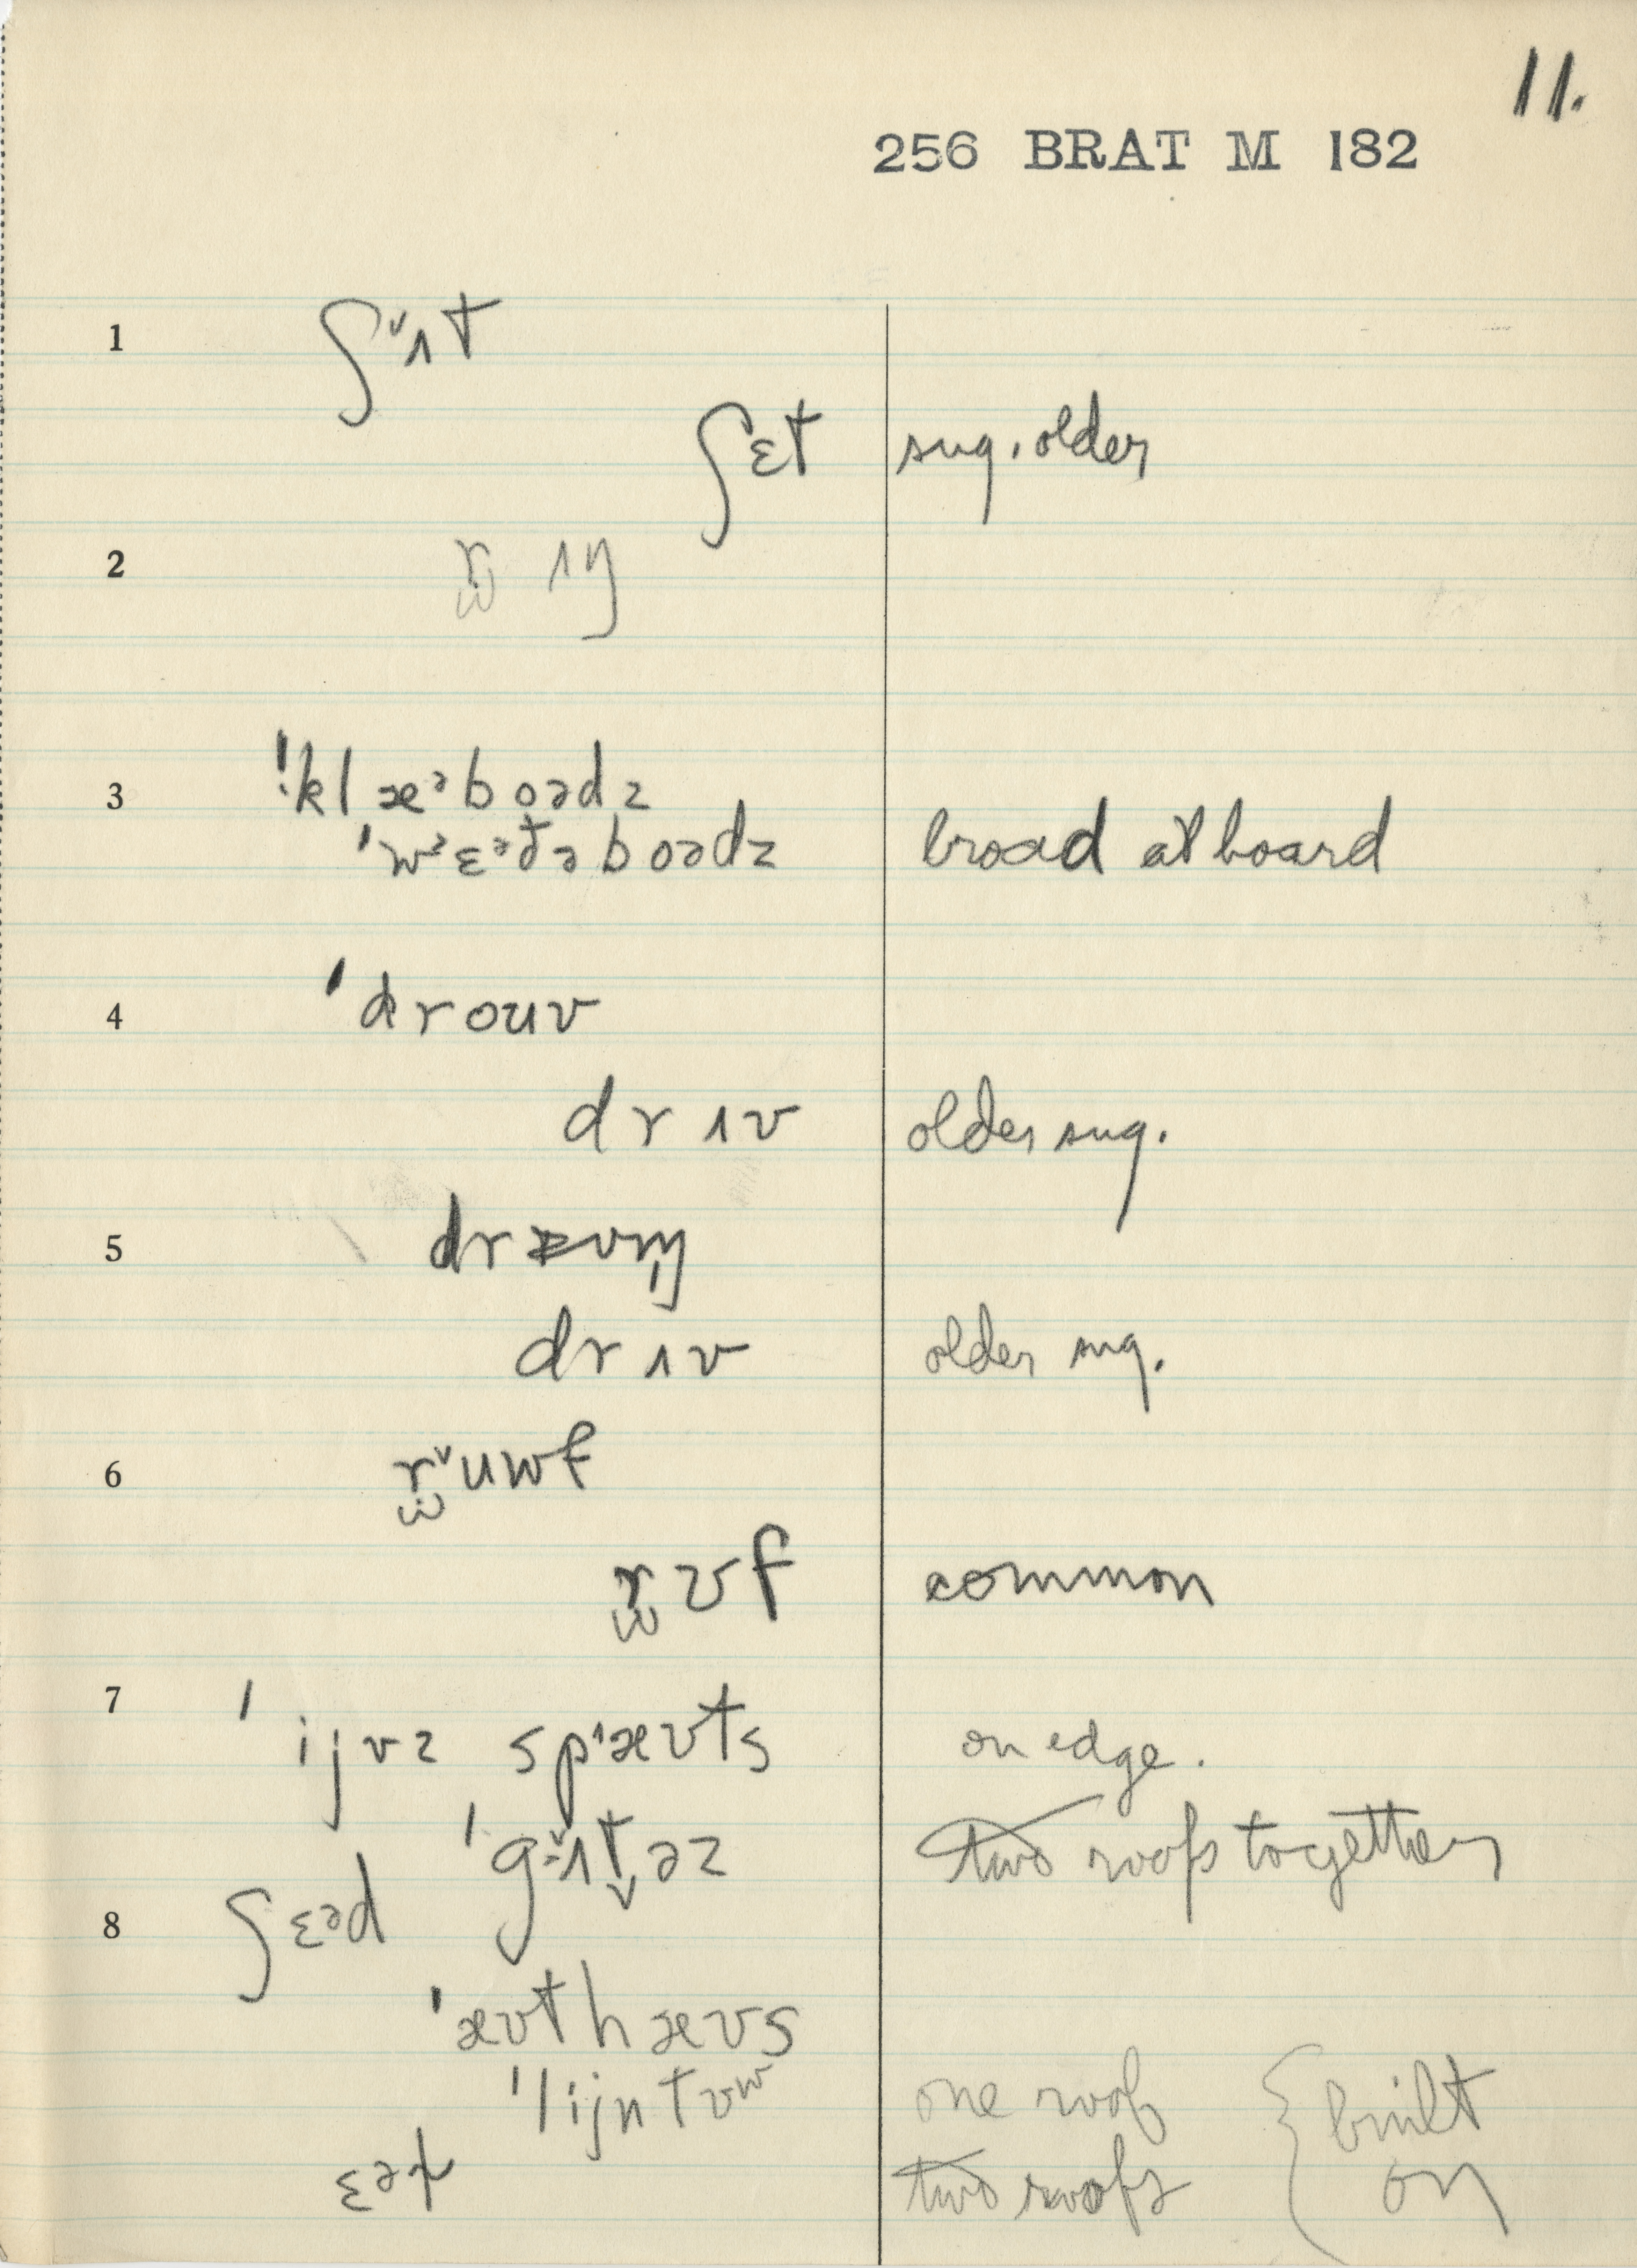 11.
256 BRAT M 182
1 ʃᵛɪt
ʃɛt sug. older
2 r̬ɪŋ
3 !klæᵊboədz
ˈwᵊɛᵊt̬əboədz broad at board
4 ˈdrouv
drɪv older sug.
5 drɪv older sug.
6 r̬ᵛuwf
r̬ʊf common
7 ˈijvz spᶦæʊts on edge.
ˈgʉɪt̬əz two roofs together
8 ʃɛəd
ˈæʊthæʊs
ˈlijntʊʷ one roof { built
ɛəɫ two roofs on